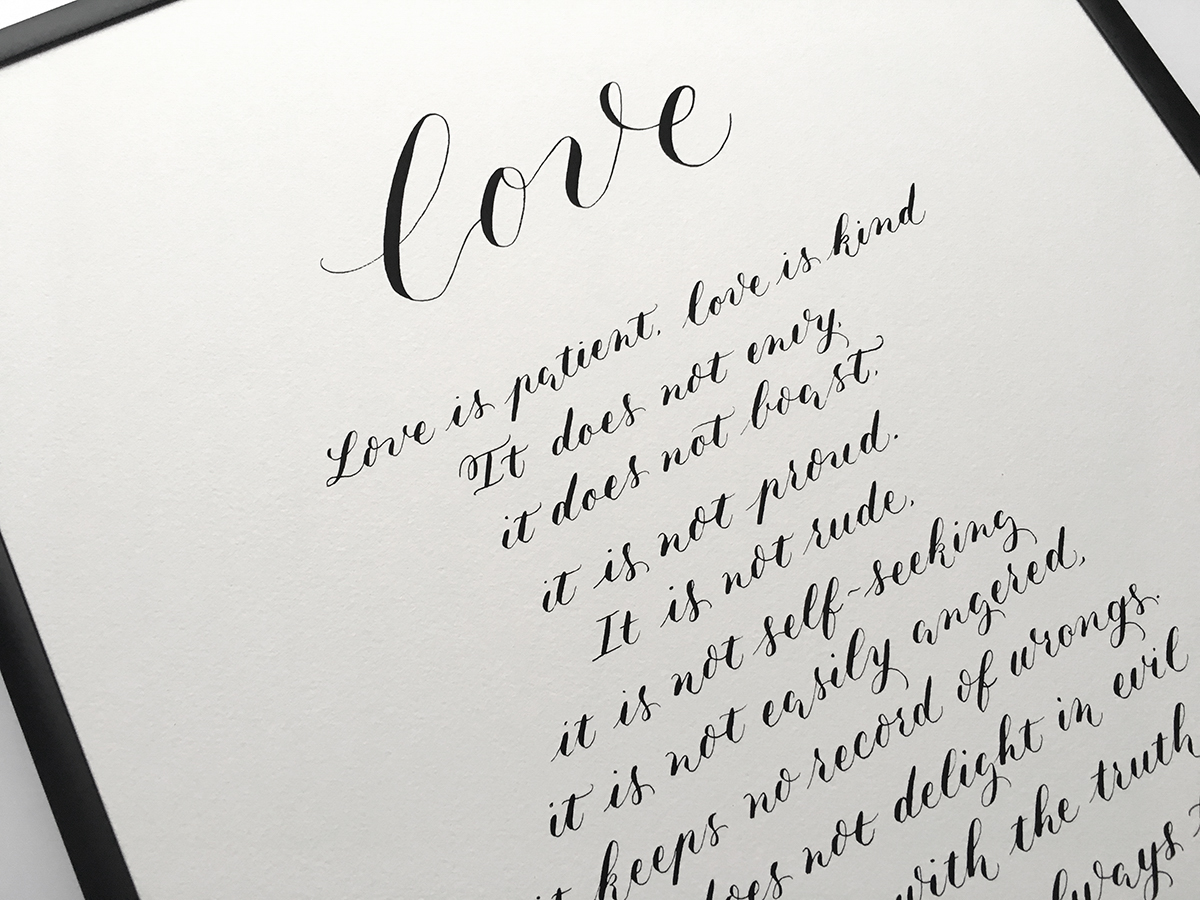 love
Love is patient, love is kind
It does not envy,
it does not boast,
it is not proud.
It is not rude,
it is not self-seeking
it is not easily angered,
it keeps no record of wrongs.
does not delight in evil
with the truth
always